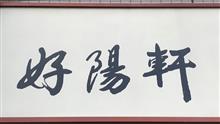 好陽軒